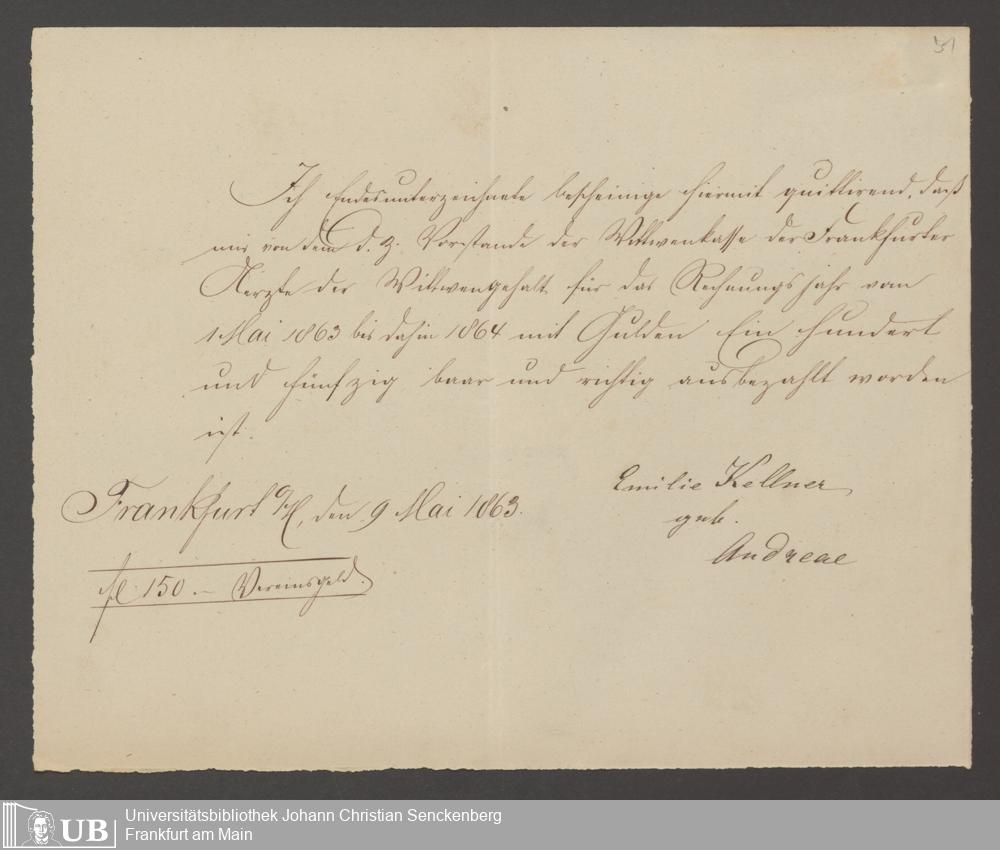 51
Ich Endesunterzeichnete bescheinige hiermit quittirend, daß
mir von dem d. Z. Vorstande der Wittwenkasse der Frankfurter
Aerzte der Wittwengehalt für das Rechnungsjahr vom
1 Mai 1863 bis dahin 1864 mit Gulden Ein hundert
und fünfzig baar und richtig ausbezahlt worden
ist.
Emilie Kellner
geb.
Andreae
Frankfurt a/M, den 9 Mai 1863.
fl. 150.– Vereinsgeld.
Universitätsbibliothek Johann Christian Senckenberg
Frankfurt am Main
UB